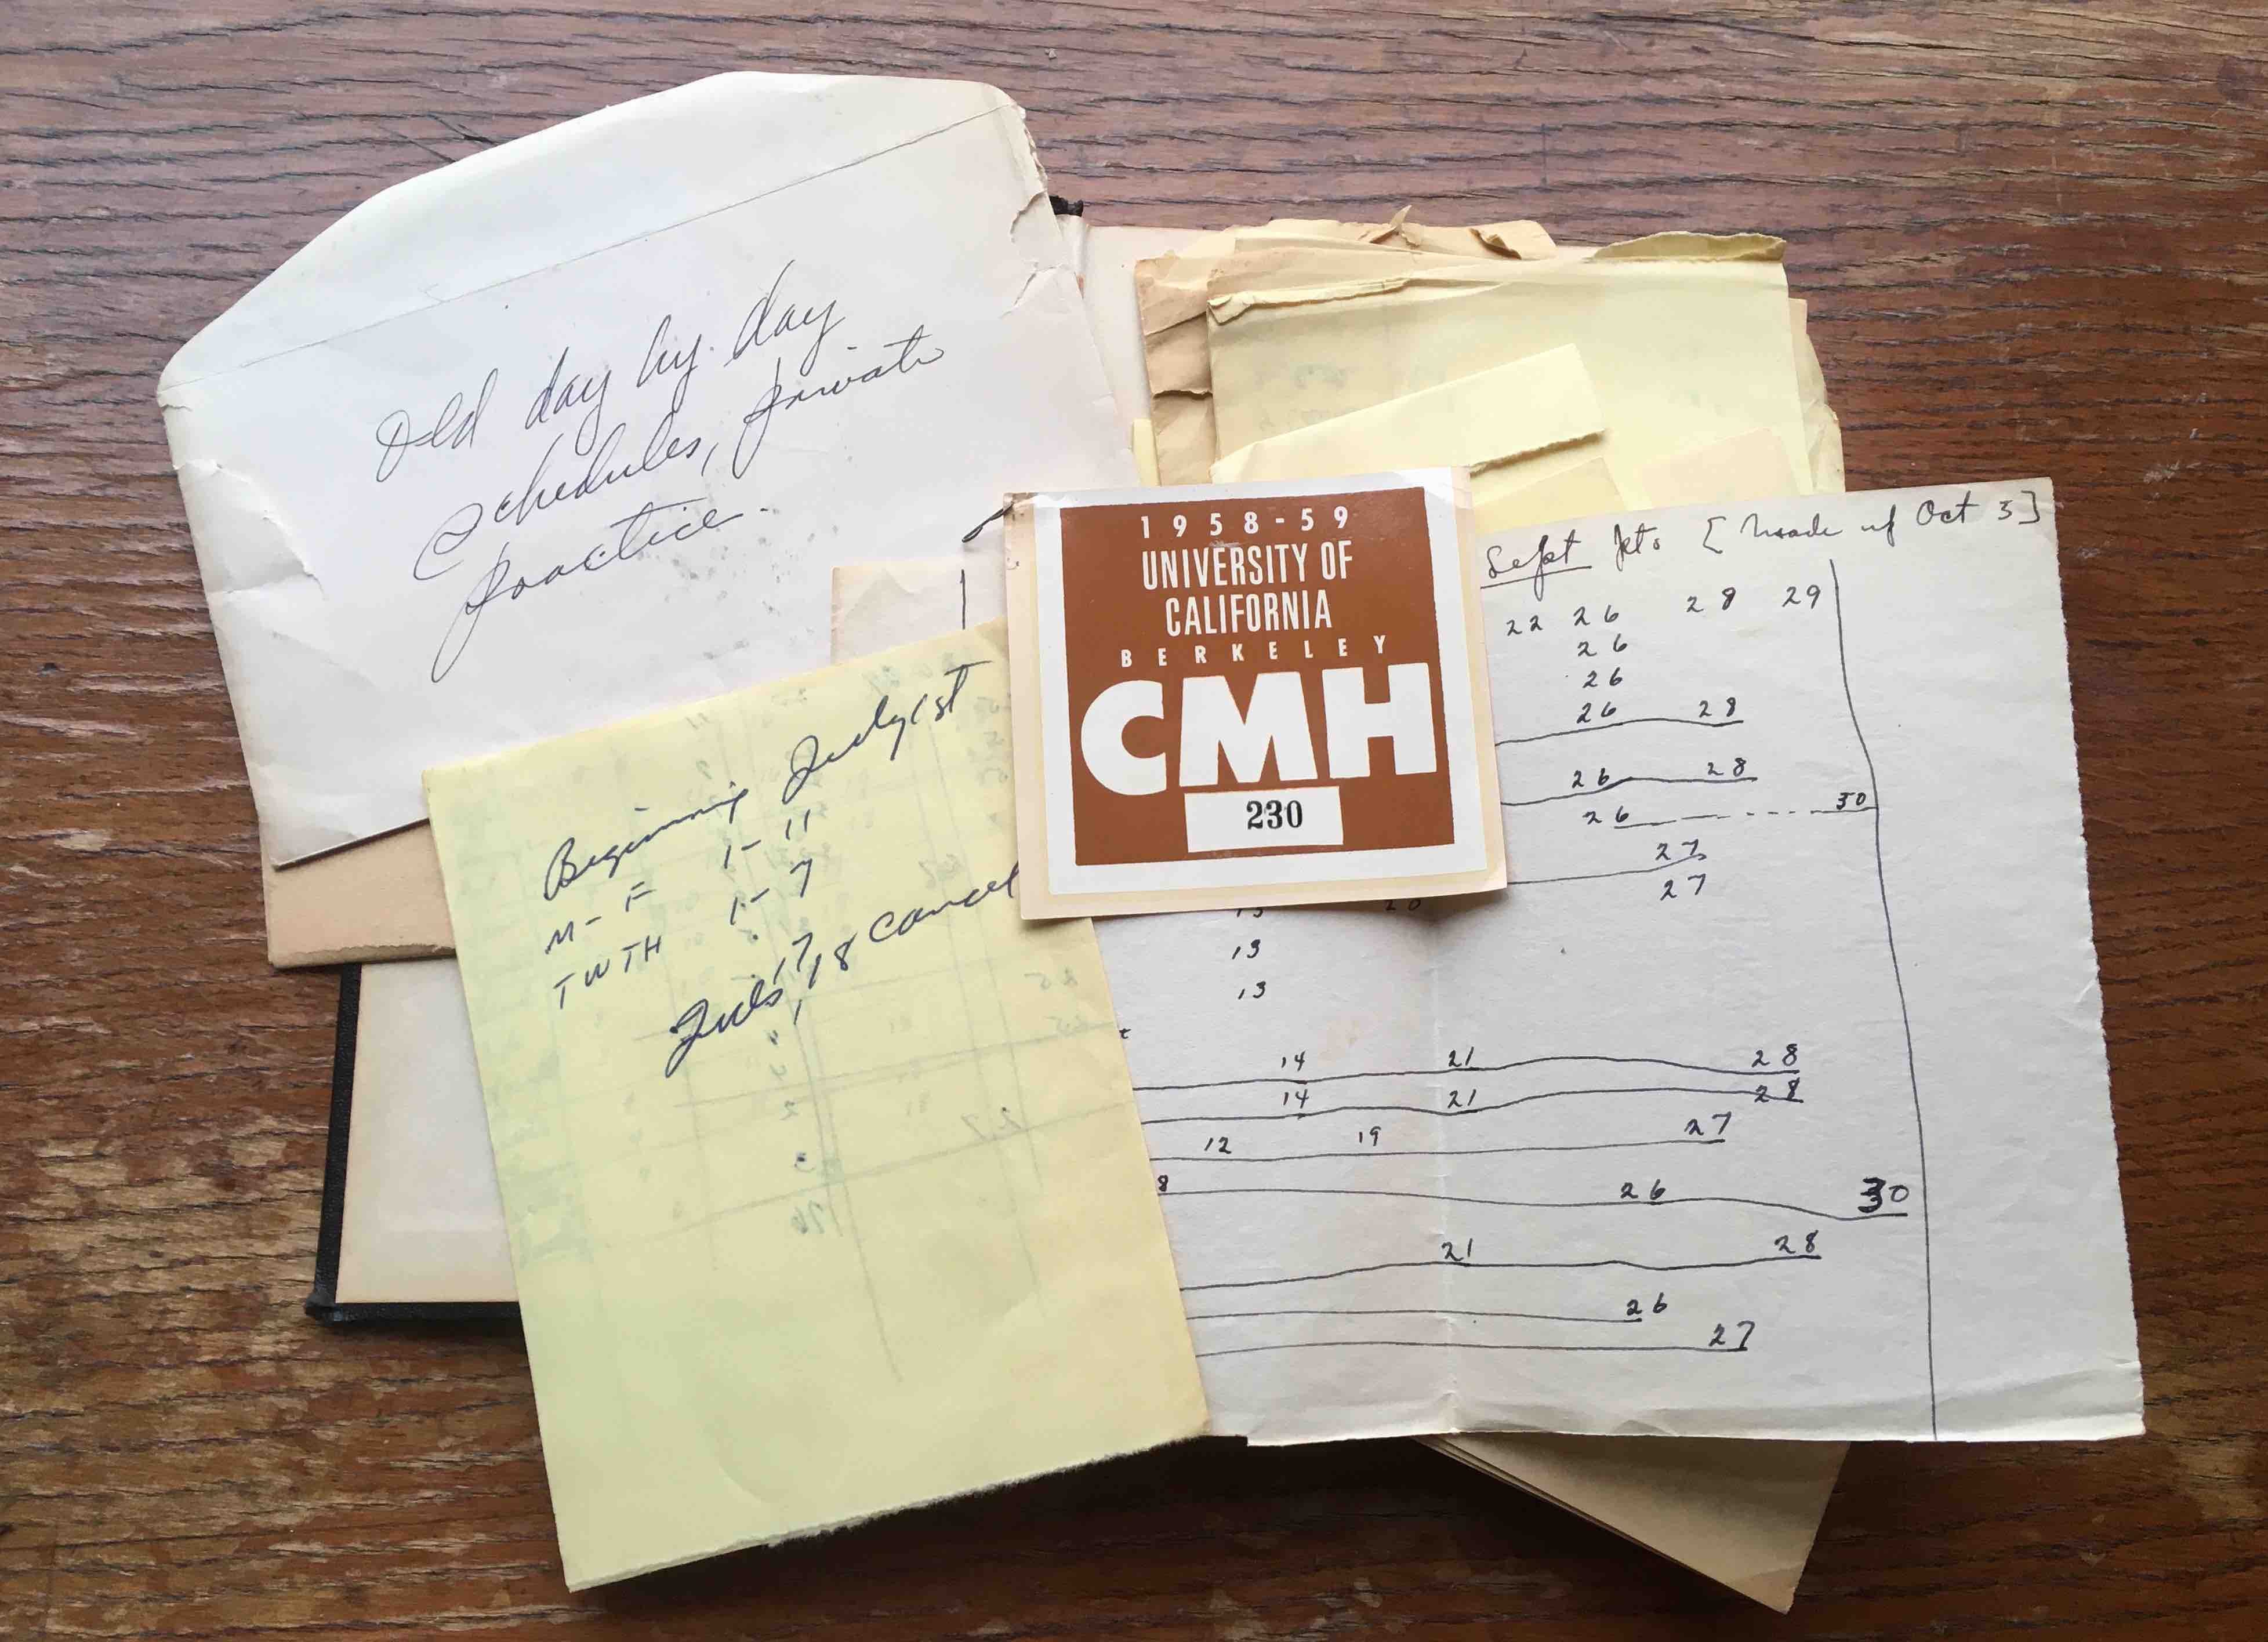 Old day by day
Schedules, private
practice.
Beginning July 1st
M - F 1 - 11
TWTH 1 - 7
17, 18 cancel
1958-59
UNIVERSITY OF
CALIFORNIA
BERKELEY
CMH
230
Sept [ Made up Oct 3]
22 26 28 29
26
26
26 28
26 28
26 30
27
27
13
13
14 21 28
14 21 28
12 19 27
8 26 30
21 28
26
27